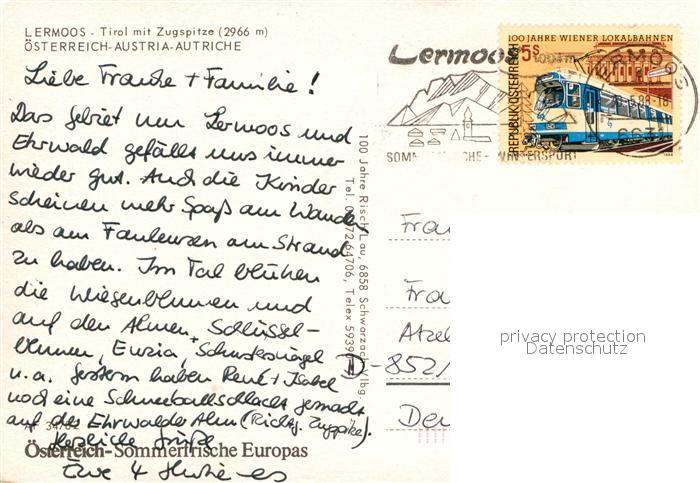 LERMOOS - Tirol mit Zugspitze (2966 m)
ÖSTERREICH-AUSTRIA-AUTRICHE
Liebe Frauke + Familie!
Das Gebiet um Lermoos und
Ehrwald gefällt uns immer
wieder gut. Auch die Kinder
scheinen mehr Spaß am Wandern
als am Faulenzen am Strand
zu haben. Im Tal blühen
die Wiesenblumen und
auf den Almen Schlüssel-
blumen, Enzian, 
u.a. Gestern haben René + Isabel
noch eine Schneeballschlacht gemacht
auf der Ehrwalder Alm (Richtg. Zugspitze).
Herzliche Grüße
Eure 4
Österreich-Sommerfrische Europas
100 Jahre Risch-Lau, 6858 Schwarzach/Vlbg.
Tel. 05572/64706, Telex 59396
Lermoos
1004m
SOMMERFRISCHE-WINTERSPORT
100 JAHRE WIENER LOKALBAHNEN
5s
REPUBLIK ÖSTERREICH
LERMOOS
6631
Fra
Fra
Atzel
D-852/
Deu
privacy protection
Datenschutz